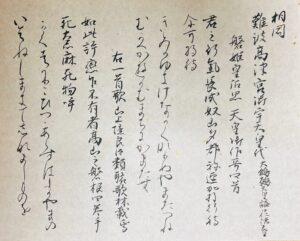 相聞
難波高津宮御宇天皇代 大鷦鷯天皇
磐姫皇后思 天皇御作哥四首
君之行氣長成奴山多都祢迎加将行待
尓可将待
きみかゆきけなかくなりぬやまたつね
むかへかゆかむまちにかまたむ
右一首歌山上憶良臣類聚歌林載焉
如此許戀乍不有者高山之磐根四巻手
死奈麻死物呼
かくはかりこひつゝあらすはたかやまの
いはねしまきてしなましものを